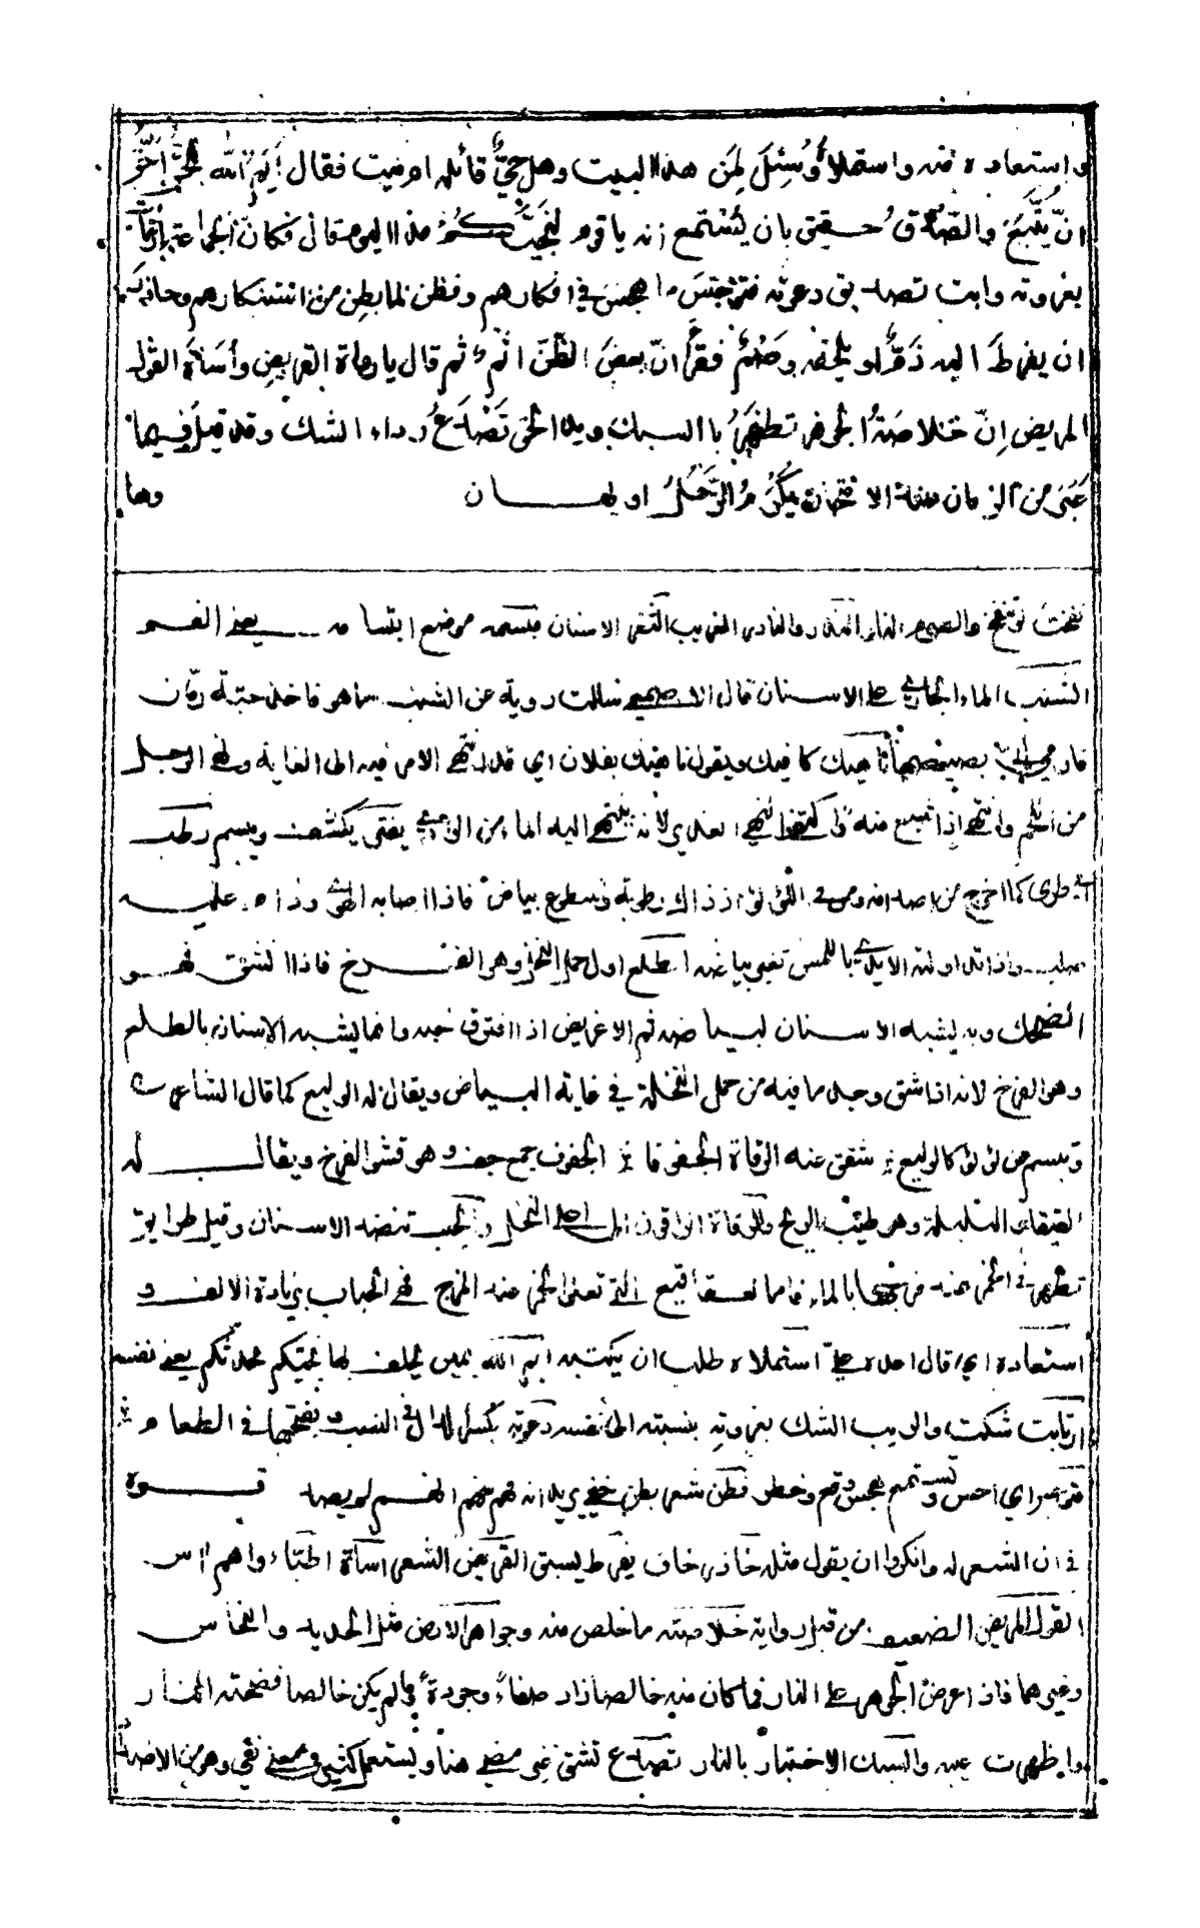 واستعاده منه واستملاه وسُئِلَ لِمَن هذا البيت وهل حيٌّ قائله ام ميت فقال أَيْمُ الله للحقُّ أَحَقُّ
انّ يُتَّبَعَ وللصّدقُ حقيق بان يُسْتمع انه يا قوم لنَجِيُّكُمْ مذ اليوم قال فكانّ الجماعة ارتابَتْ
بعزوته وابت تصديق دعوته فتوجّسَ ما هجسَ في افكارهم وفطن لما بطن من استنكارهم وحاذر
ان يفرطَ اليه ذمٌّ او يلحقه وصْمٌ فقرأ انّ بعضَ الظّنّ اثم ثم قال يا رواة القريضِ وأُسَاةَ القول
المريض إنّ خلاصَةُ الجوهر تظهَرُ بالسبك ويد الحق تَصْدَعُ رداء الشك وقد قيل فيما
غَبَرَ من الزمان عند الامتحان يُكْرَمُ الرَّجُلُ او يهان وها
نفخت توقد والضرم النار المتقد والنادر الغريب الثغر الاسنان مبسمه موضع ابتسامه يعني الفم
الشنب الماء الجاري على الاسنان قال الاصمعي سالت رؤية عن الشنب ما هو فاخذ حبّة رمّان
فاومى الي بصيصها ناهيك كافيك ويقول ناهيك بفلان اي قد انتهى الامر فيه الى الغاية ونهى الرجل
من اللحم وانتهى اذا شبع منه واكتفى النهي الغدير لانه ينتهي اليه الماء من الوادي يفتر يكشف ويبسم رطب
اي طري كما اخرج من اصدافه ومن في اللؤلؤ اذ ذاك رطوبة وسطوع بياض فاذا اصابه الهوى وزاد عليه
صلب واذا تداولته الايدي باللمس تغير بياضه الطلع اول حمل النخل وهو الفرخ فاذا انشق فهو
الضحك وبه يشبه الاسنان لبياضه ثم الاغريض اذا افترق عنه وانما يشبه الاسنان بالطلع
وهو الفرخ لانه اذا شق وجد ما فيه من حمل النخلة في غاية البياض ويقال له الوليع كما قال الشاعر
وتبسم عن لؤلؤ كالوليع شقق عنه الرقاة الجفوفا الجفوف جمع جف وهو قشر الفرخ ويقال له
القيقاء البلبلة وهو طيب الريح والرقاة الراقون الى اعلى النخل والحبب تنضد الاسنان وقيل طرايق
تظهر في الخمر عند مزجها بالماء فاما الفقاقيع التي تعلو الخمر عند المزج فهي الحباب بزيادة الالف
استعاده اي قال اعده عليّ استملاه طلب ان يكتبه ايم الله يمين يحلف بها نجيكم محدثكم يعني نفسه
ارتابت شكت والريب الشك بعزوته بنسبته الى نفسه دعوته بكسر الدال في النسب وبفتحها في الطعام
فتوجس اي احس وتسمع هجس وقع وخطر فطن شعر بطن خفي يريد انه فهم منهم انهم لم يصدقوه
في ان الشعر له وانكروا ان يقول مثله حاذر خاف يفرط يسبق القريض الشعر اساة اطباء واهم اس
القول المريض الضعيف من قبل رواية خلاصته ما خلص منه وجواهر الارض مثل الحديد والنحاس
وغيرهما فاذا عرض الجوهر على النار فما كان منه خالصا زاد صفاءً وجودةً وما لم يكن خالصا فضحته النار
واظهرت عيبه والسبك الاختبار بالنار تصدع تشق غبر مضى هنا ويستعمل كثيرا في معنى بقي وهو من الاضداد